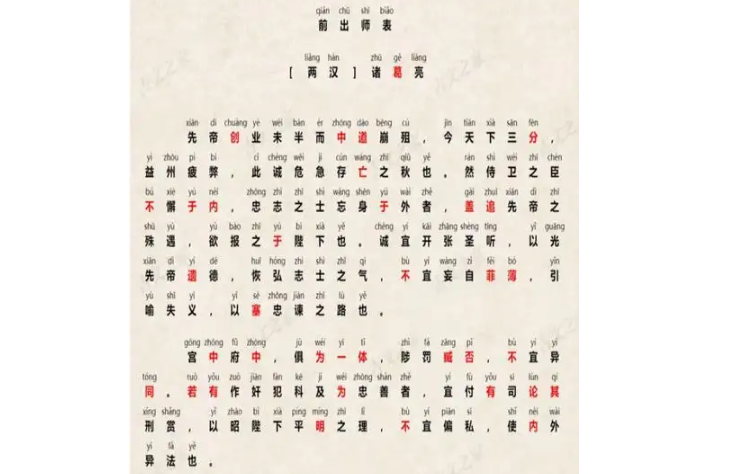 qián chū shī biǎo
前出师表
liǎng hàn zhū gě liàng
[两汉]诸葛亮
xiān dì chuàng yè wèi bàn ér zhōng dào bēng cú jīn tiān xià sān fēn
先帝创业未半而中道崩殂,今天下三分,
yì zhōu pí bì cǐ chéng wēi jí cún wáng zhī qiū yě rán shì wèi zhī chén
益州疲弊,此诚危急存亡之秋也。然侍卫之臣
bú xiè yú nèi zhōng zhì zhī shì wàng shēn yú wài zhě gài zhuī xiān dì zhī
不懈于内,忠志之士忘身于外者,盖追先帝之
shū yù yù bào zhī yú bì xià yě chéng yí kāi zhāng shèng tīng yǐ guāng
殊遇,欲报之于陛下也。诚宜开张圣听,以光
xiān dì yí dé huī hóng zhì shì zhī qì bù yí wàng zì fěi bó yǐn
先帝遗德,恢弘志士之气,不宜妄自菲薄,引
yù shī yì yǐ sè zhōng jiàn zhī lù yě
喻失义,以塞忠谏之路也。
gōng zhōng fǔ zhōng jù wéi yì tǐ zhì fá zāng pǐ bù yí yì
宫中府中,俱为一体,陟罚臧否,不宜异
tóng ruò yǒu zuò jiān fàn kē jí wéi zhōng shàn zhě yí fù yǒu sī lùn qí
同。若有作奸犯科及为忠善者,宜付有司论其
xíng shǎng yǐ zhāo bì xià píng míng zhī lǐ bù yí piān sī shǐ nèi wài
刑赏,以昭陛下平明之理,不宜偏私,使内外
yì fǎ yě
异法也。